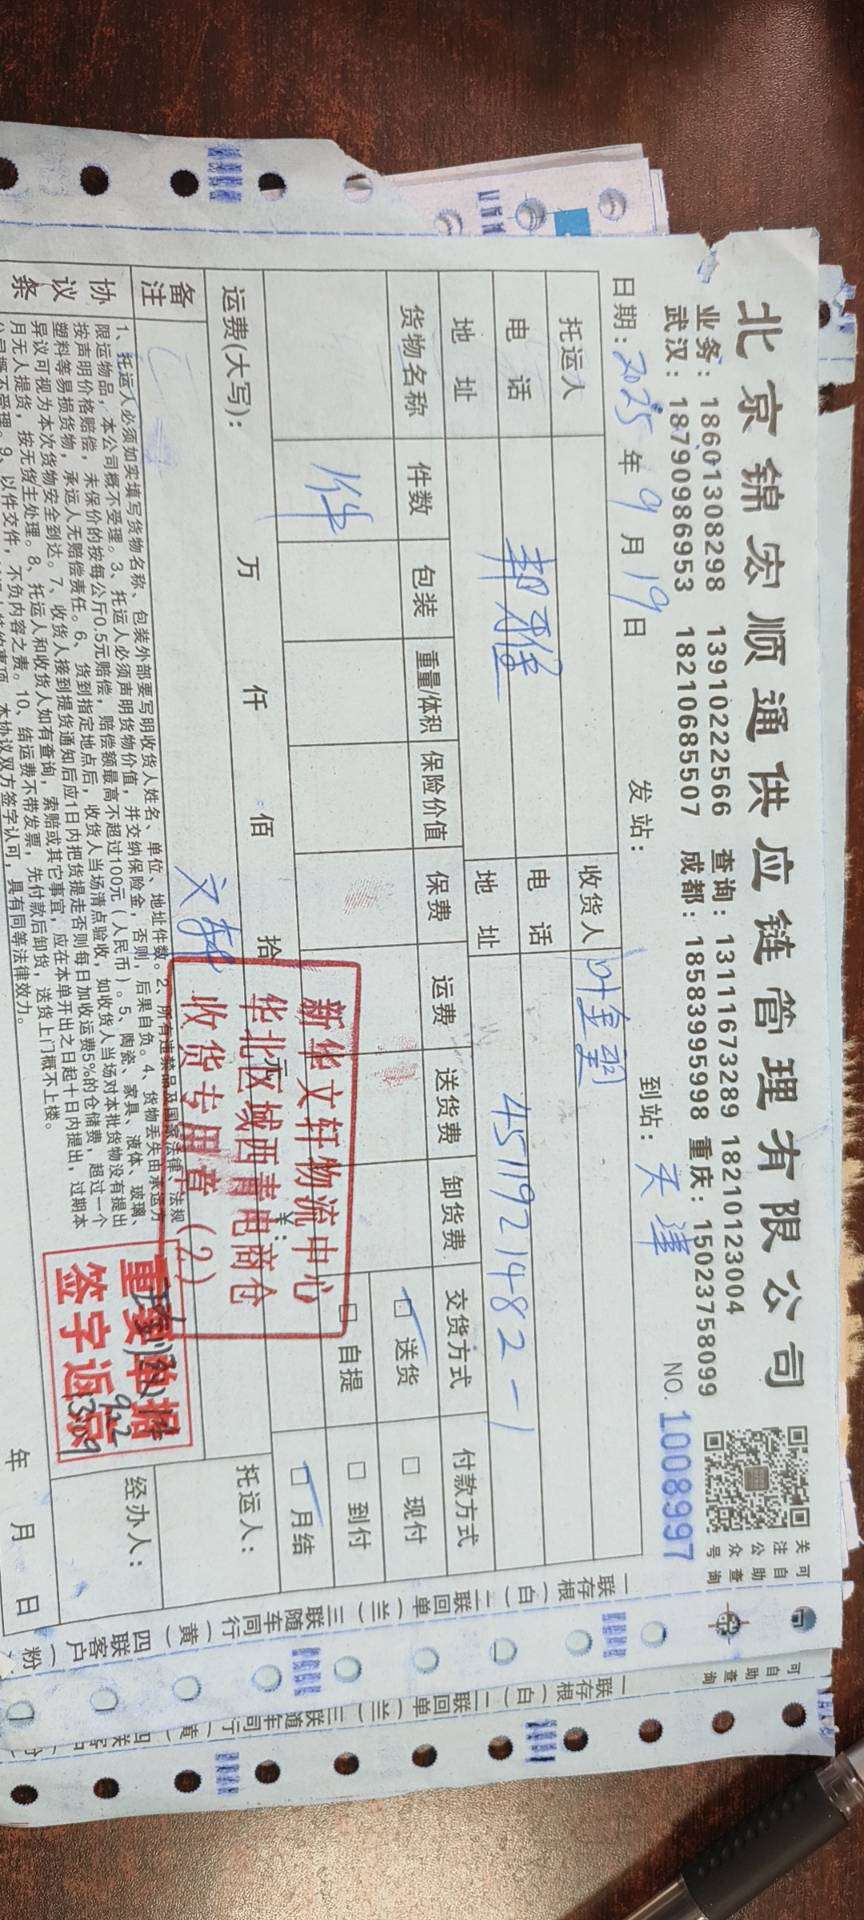 北京锦宏顺通供应链管理有限公司
业务：18601308298 13910222566 查询：13111673289 18210123004
武汉：18790986953 18210685507 成都：18583995998 重庆：15023758099
关注公众号
可自助查询
日期：2025年9月19日 发站： 到站：天津 NO.1008997
托运人 收货人 叶金翠
电话 电话
地址 地址 4511921482-1
货物名称 件数 包装 重量/体积 保险价值 保费 运费 送货费 卸货费 交货方式 付款方式
1件 送货 现付
自提 到付
月结
运费(大写)： 万 仟 佰 拾 元 ¥：
托运人：
备注 文轩
经办人：
新华文轩物流中心
华北区域西青电商仓
收货专用章（2）
重要单据
签字返京
协议条
1、托运人必须如实填写货物名称、包装外部要写明收货人姓名、单位、地址件数。2、所有违禁品及国家法律、法规
限运物品，本公司概不受理。3、托运人必须声明货物价值，并交纳保险金，否则，后果自负。4、货物丢失由承运方
按声明价格赔偿，未保价的按每公斤0.5元赔偿，赔偿额最高不超过100元（人民币）。5、陶瓷、家具、液体、玻璃、
塑料等易损货物，承运人无赔偿责任。6、货到指定地点后，收货人当场清点验收，如收货人当场对本批货物没有提出
异议可视为本次货物安全到达。7、收货人接到提货通知后应1日内把货提走否则每日加收运费5%的仓储费，超过一个
月无人提货，按无货主处理。8、托运人和收货人如有查询，索赔或其它事宜，应在本单开出之日起十日内提出，过期本
公司概不受理。9、以件交件，不负内容之责。10、结运费不带发票，先付款后卸货，送货上门概不上楼。
本协议双方签字认可，具有同等法律效力。
年 月 日
一联存根（白）二联回单（兰）三联随车同行（黄）四联客户（粉